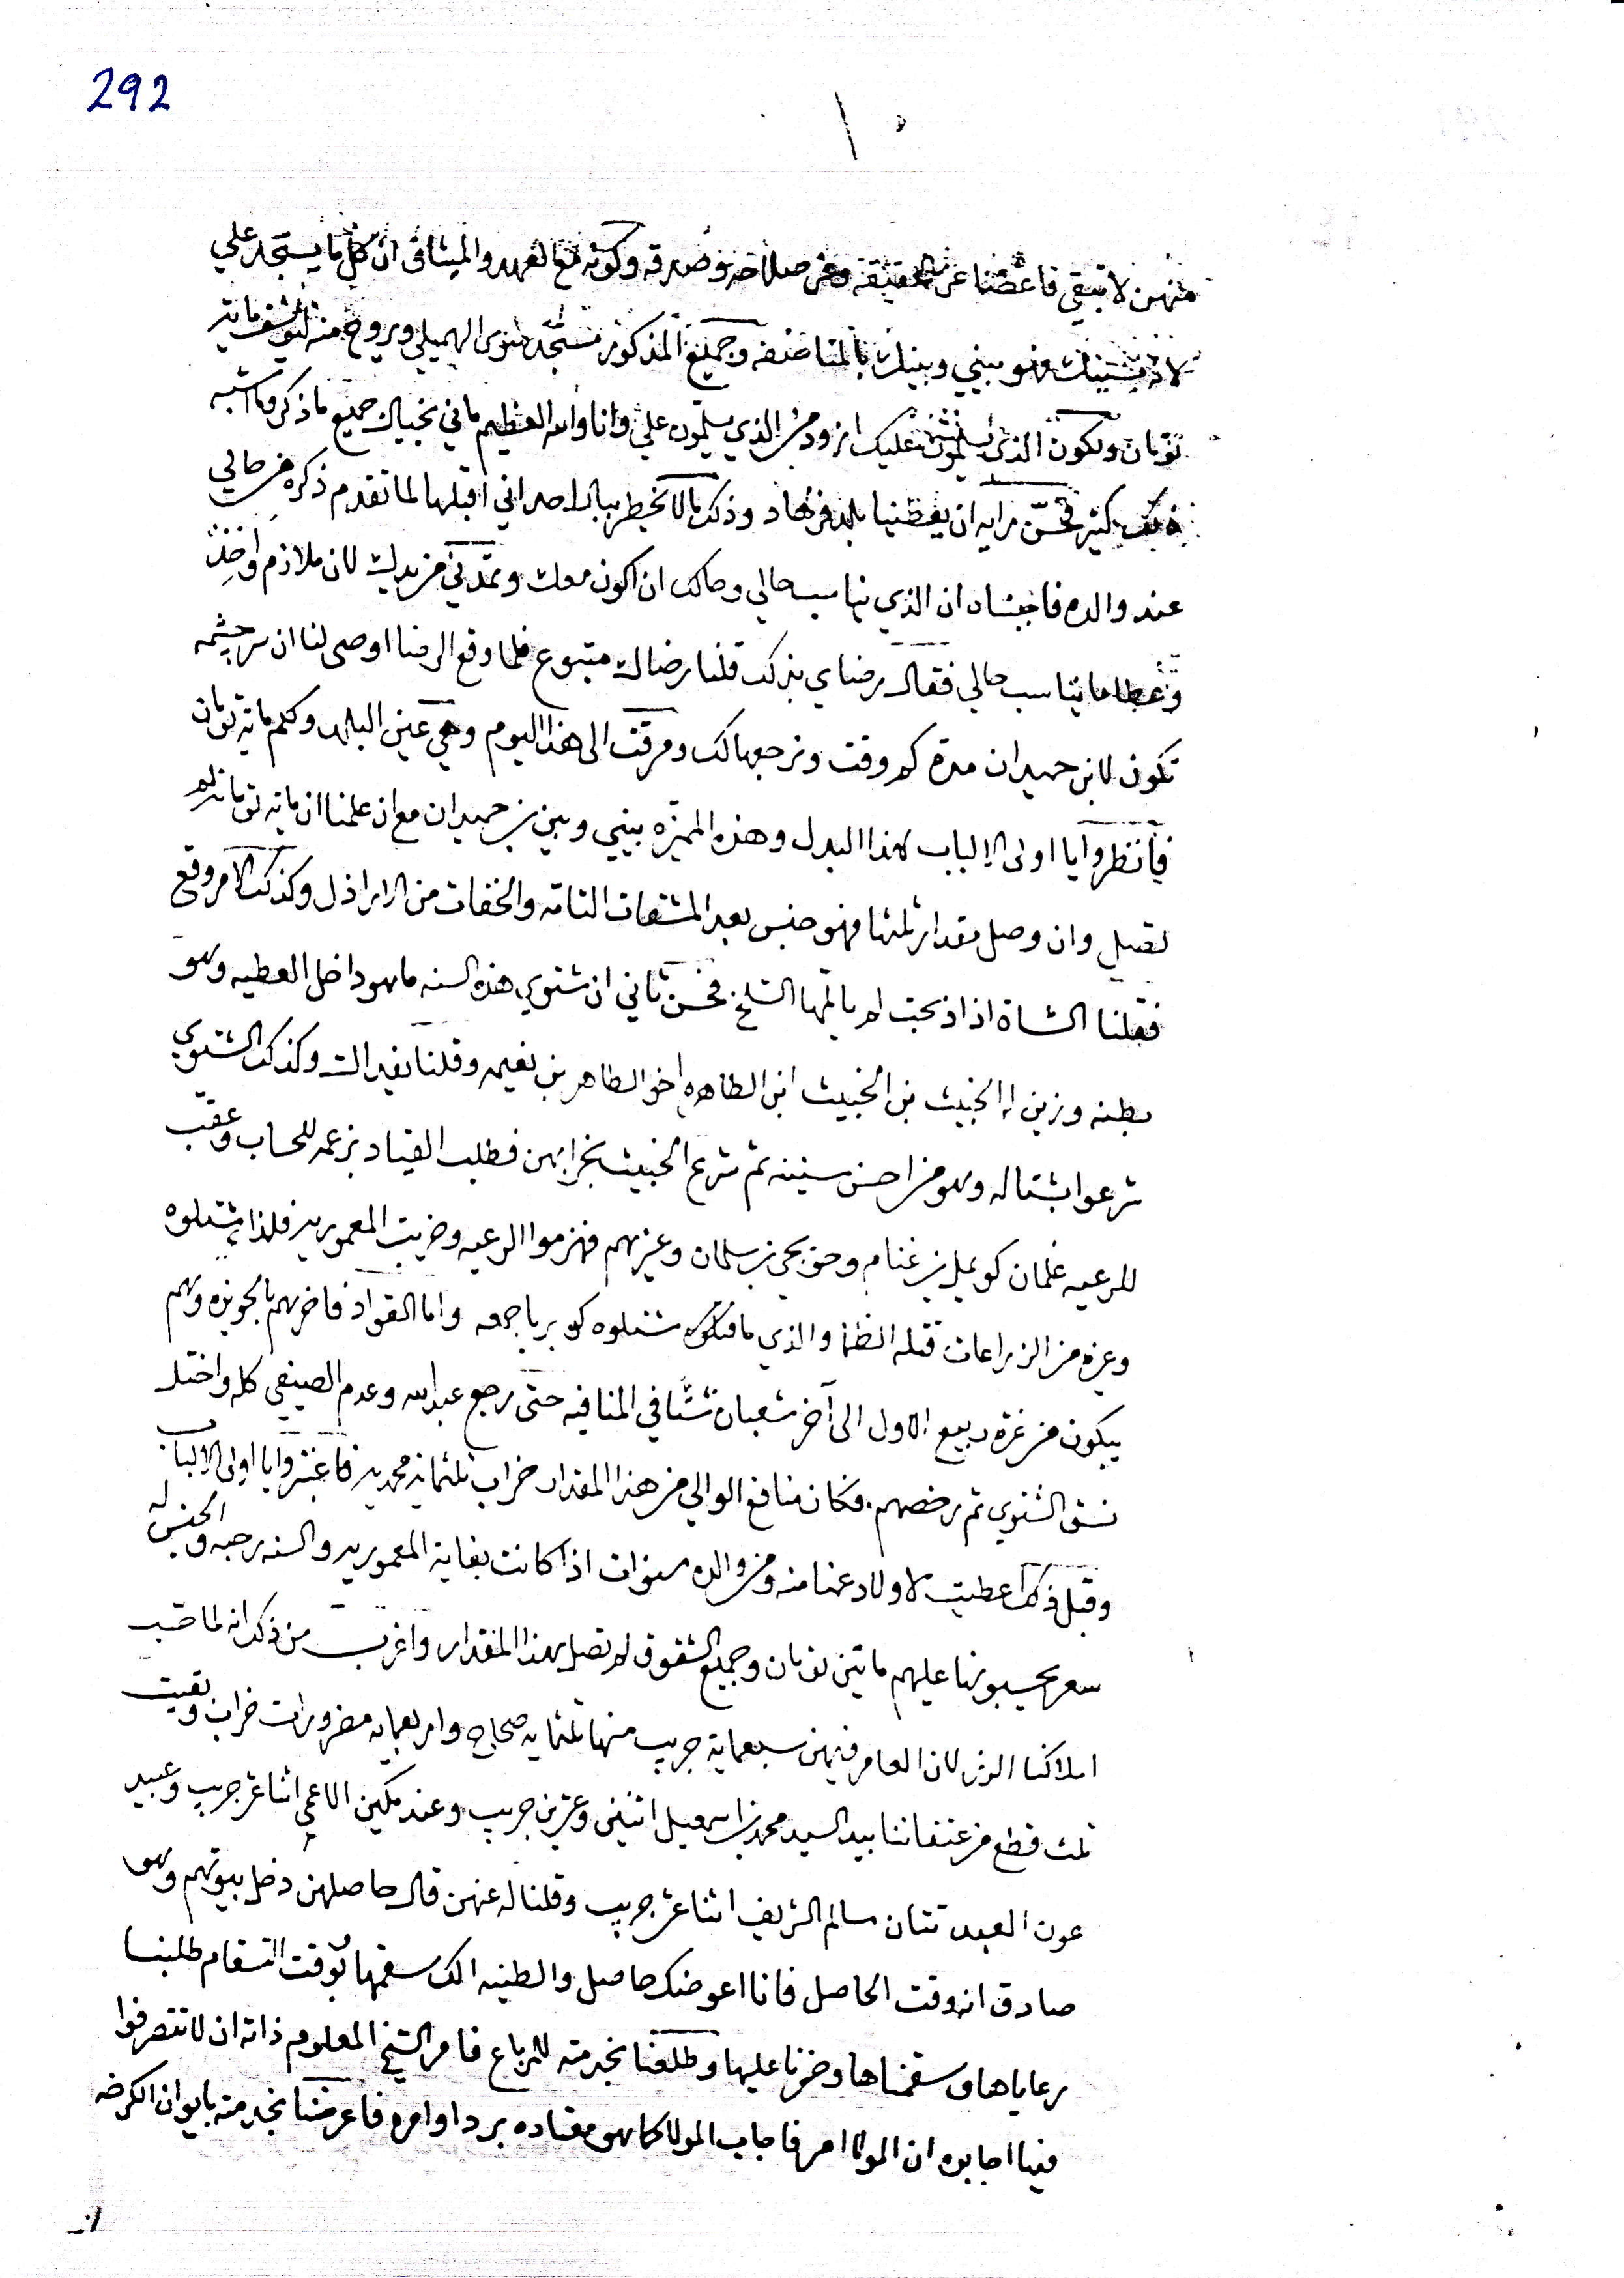 292
منهن لا تبقي فاغضنا عن الحقيقه وعن صلاحه وصدقه وكونه مع العهد والميثاق ان كل ما يستجد علي
لا فهو بيني وبينك بالمناصفه وجميع المذكور مستجد شتوي الهميلي ويروح منه
تومان وتكون الذي يسلمون عليك ازود من الذي يسلمون علي وانا والله العظيم ماني بخيال جميع ما ذكر وما اشبه
ذلك كثير فحسن رايه ان يعطنيا بلد فرهاد وذلك ما لا يخطر ببال احد اني اقبلها لما تقدم ذكره من حالي
عند والده فاجبناه ان الذي يناسب حالي وحالك ان اكون معك وتمدني من يدك لان ملازم واخذ
وعطا ما يناسب حالي فقال رضاي بذلك قلنا رضاك متبوع فلما وقع الرضا اوصى لنا ان سرحشمه
تكون لابن حميدان مدة كم وقت ونرجعها لك ومرقت الى هذا اليوم وهي عين البلاد وكلم ماية تومان
فانظروا يا اولى الالباب لهذا البدل وهذه الميزه بيني وبين بن حميدان مع ان علمنا ان مايه تومان لم
تصل وان وصل مقدار ثلثها فهو جنس بعد المشقات التامه والخفات من الاراذل وكذلك الامر وقع
فقلنا الشاة اذا ذبحت لم يالمها السلخ فحسن ثاني ان شتوي هذه السنه ما هو داخل العطيه وهو
بطنه وزين له الخبيث بن الخبيث ابن الطاهره اخو الطاهر بن نعيمه وقلنا نفد الث وكذلك الشتوي
شرعوا بشتاله وهو من احسن سنينه ثم شرع الخبيث بخرابهن فطلب القياد بزعمه للحساب وعقب
للرعيه غلمان كويمل بن غنام وحويجي بن سلمان وغيرهم فهزموا الرعيه وخربت المعموريه فلهذا شتلوه
وغيره من الزراعات قتله الظما والذي ما قتلوه شتلوه كله برباجمعه واما القواد فاخرهم بالحويزه وهم
يبكون من غرة ربيع الاول الى آخر شعبان شتا في المنافيه حتى رجع عبدالله وعدم الصيفي كله واختل
نسق الشتوي ثم رخصهم فكان منافع الوالي من هذا المقدار خراب ثلثمايه محمديه فاعتبروا يا اولى الالباب
وقبل ذلك اعطيت لاولاد عمنا منه ومن والده سنوات اذا كانت بغاية المعموريه والسنه رحبه والجنس له
سعر يحسبونها عليهم مايتين تومان وجميع الشقوق لم تصل بهذا المقدار واغرب من ذلك انه لما حسب
املاكنا الذي لان العامر فيهن سبعماية جريب منها ثلثمايه صحاح واربعمايه مضرورات خراب وبقيت
ثلث قطع من عتقاتنا بيد السيد محمد بن اسمعيل اثنين وعشرين جريب وعند مكين الاعمى اثنا عشر جريب وعبيد
عون العبد تتان سالم الشريف اثنا عشر جريب وقلنا له عنهن قال حاصلهن دخل بيوتهم وهو
صادق انه وقت الحاصل فانا اعوضك حاصل والطينه لك سقمها بوقت التسقام طلبنا
رعاياها وسقمناها وخرنا عليها وطلعنا بخدمته للرباع فامر الشيخ المعلوم ذاته ان لا تتصرفوا
فيها اجابوه ان المولا امر فاجاب المولا كما هو معتاده برد اوامره فاعرضنا بخدمته بايوان الكرخه